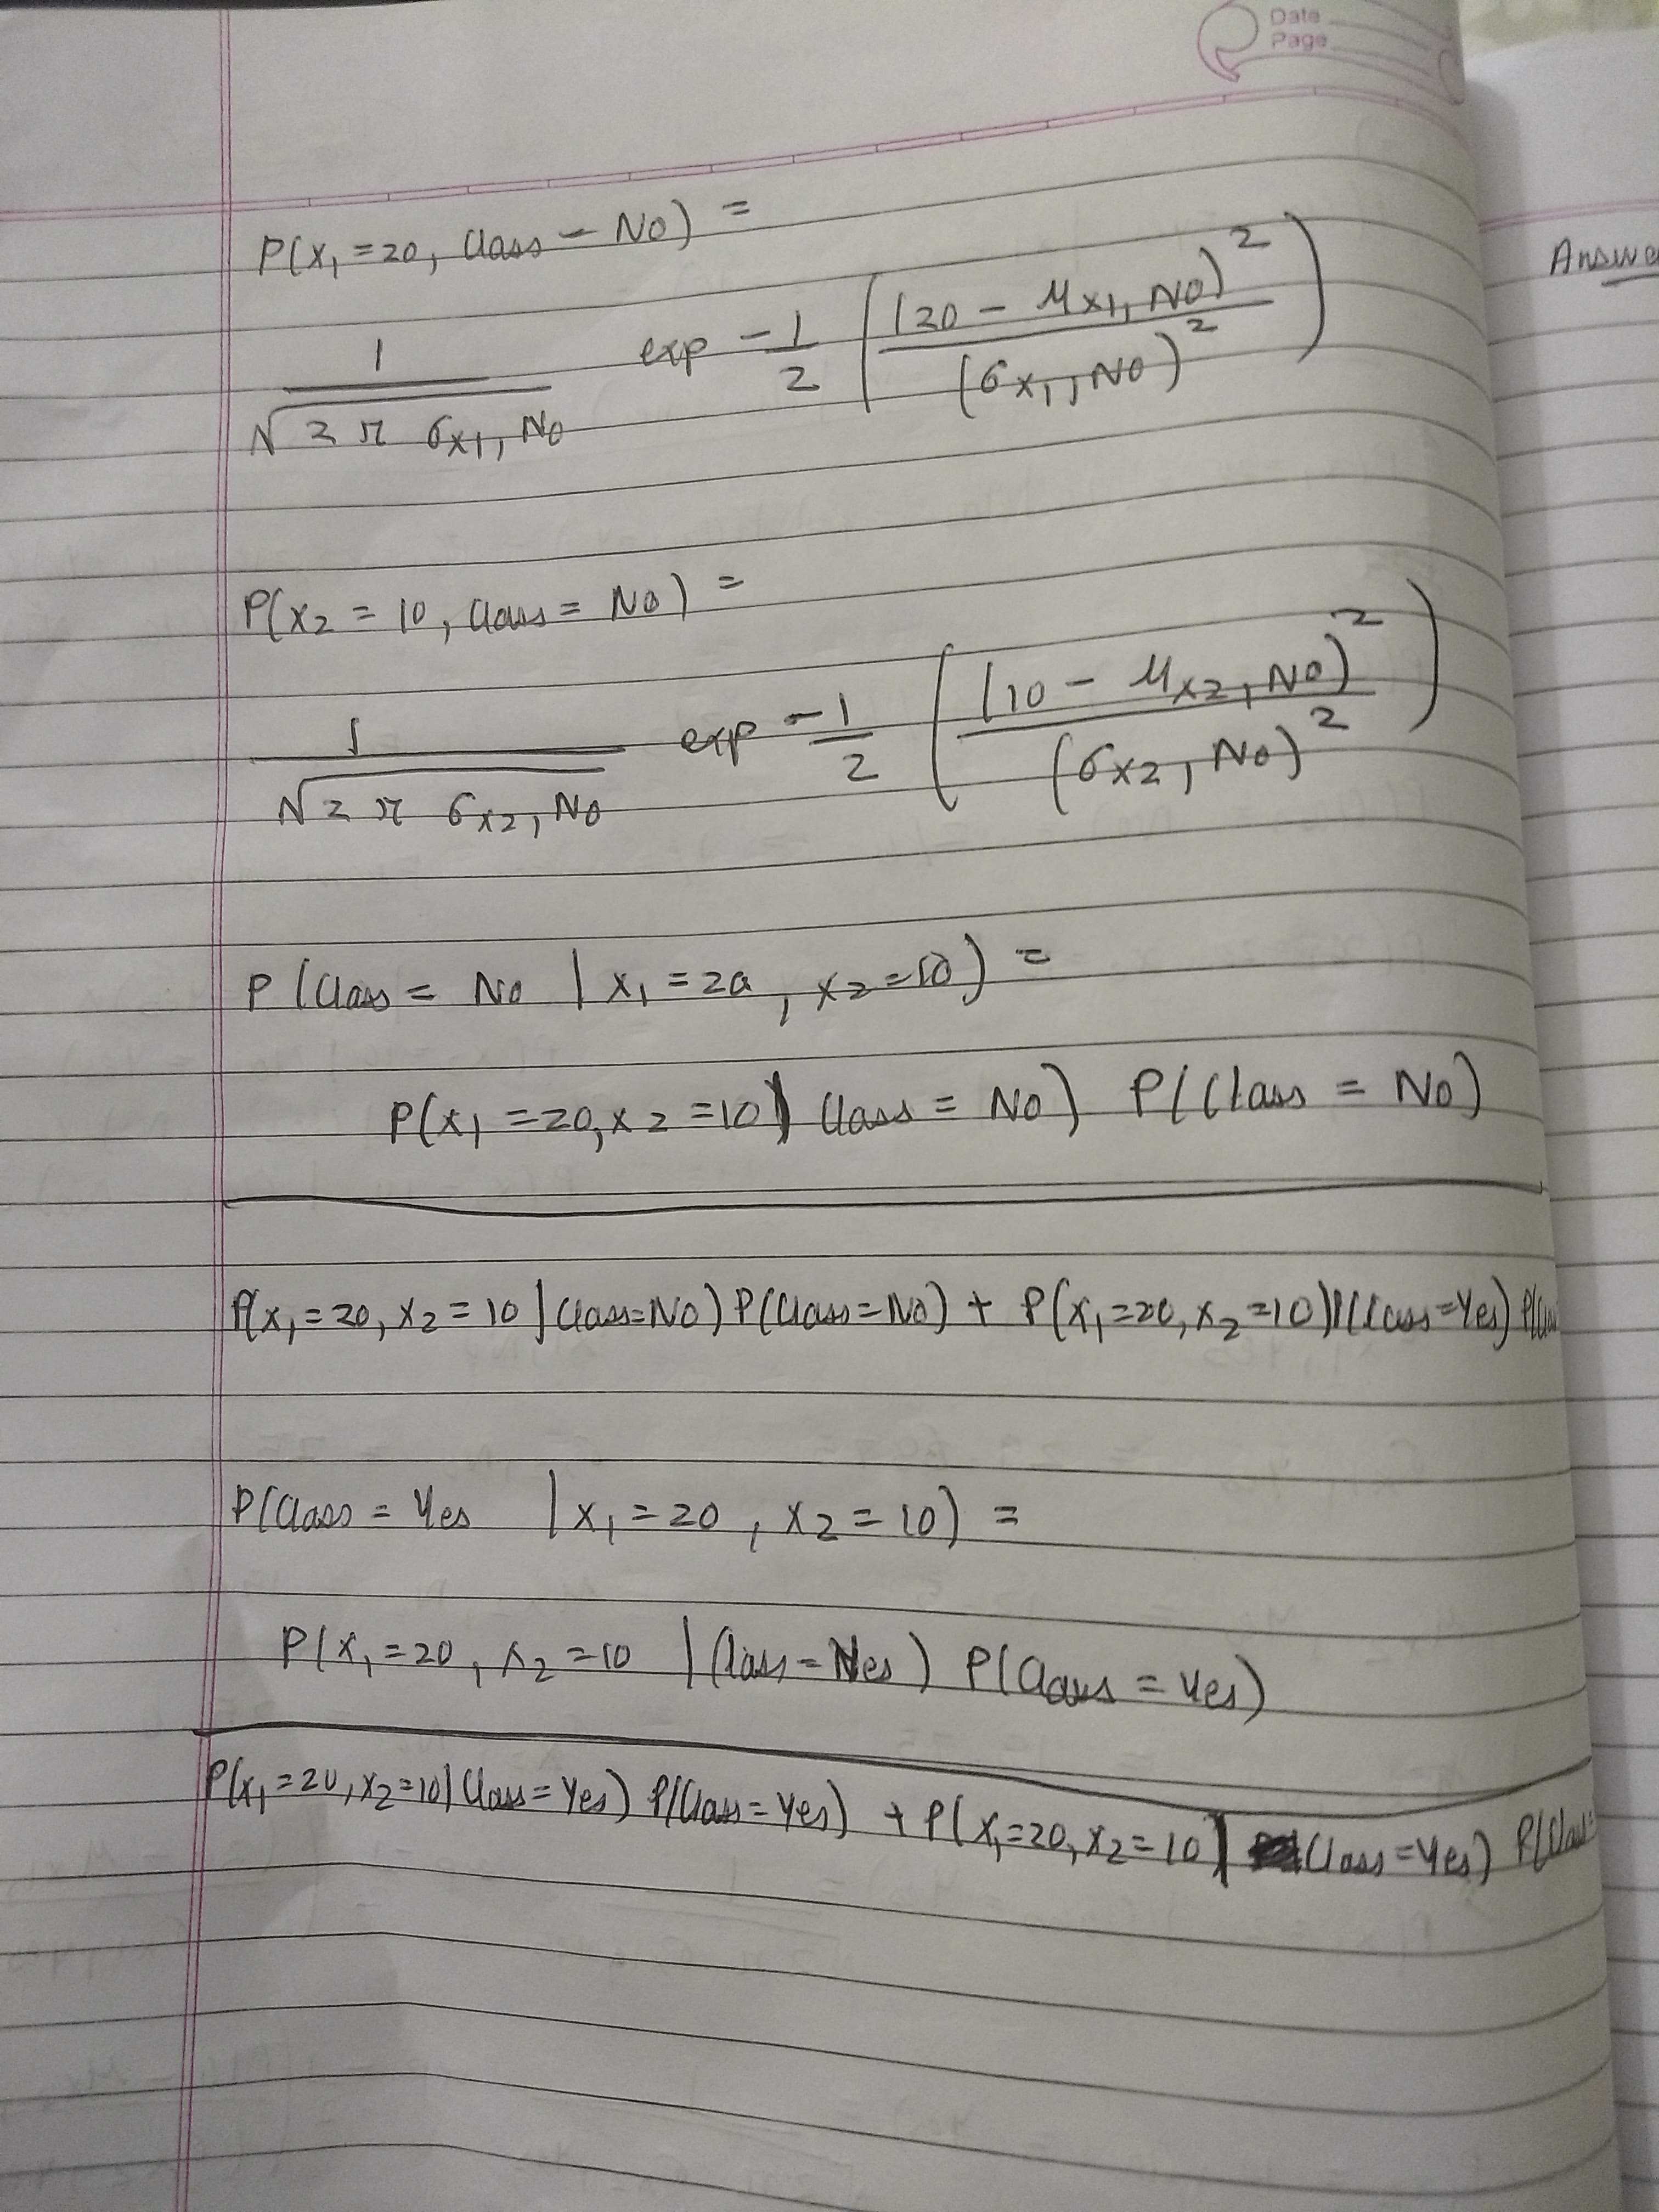 Date
Page
P(x₁ = 20, Class – No) =
1 / √2π σx₁, No exp -1/2 ( (20 - μx₁, No)² / (σx₁, No)² )
P(x₂ = 10, Class = No) =
1 / √2π σx₂, No exp -1/2 ( (10 - μx₂, No)² / (σx₂, No)² )
P(Class = No | x₁ = 20, x₂ = 10) =
P(x₁ = 20, x₂ = 10 | Class = No) P(Class = No)
P(x₁ = 20, x₂ = 10 | Class = No) P(Class = No) + P(x₁ = 20, x₂ = 10) | (Class = Yes)
P(Class = Yes | x₁ = 20, x₂ = 10) =
P(x₁ = 20, x₂ = 10 | Class = Yes) P(Class = Yes)
P(x₁ = 20, x₂ = 10 | Class = Yes) P(Class = Yes) + P(x₁ = 20, x₂ = 10 | Class = Yes) P(Class =